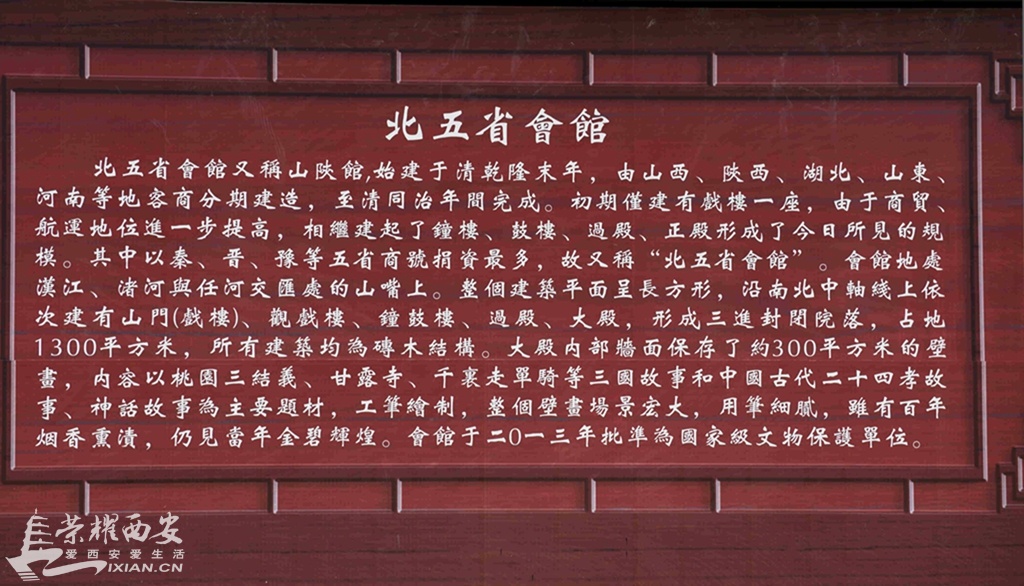 北五省會館
北五省會館又稱山陝館,始建于清乾隆末年，由山西、陝西、湖北、山東、
河南等地客商分期建造，至清同治年間完成。初期僅建有戲樓一座，由于商貿、
航運地位進一步提高，相繼建起了鐘樓、鼓樓、過殿、正殿形成了今日所見的規
模。其中以秦、晋、豫等五省商號捐資最多，故又稱“北五省會館”。會館地處
漢江、渚河與任河交匯處的山嘴上。整個建築平面呈長方形，沿南北中軸綫上依
次建有山門(戲樓)、觀戲樓、鐘鼓樓、過殿、大殿，形成三進封閉院落，占地
1300平方米，所有建築均為磚木結構。大殿内部牆面保存了約300平方米的壁
畫，内容以桃園三結義、甘露寺、千裏走單騎等三國故事和中國古代二十四孝故
事、神話故事為主要題材，工筆繪制，整個壁畫場景宏大，用筆細膩，雖有百年
烟香熏漬，仍見當年金碧輝煌。會館于二0一三年批準為國家級文物保護單位。
荣耀西安
爱西安爱生活
IXIAN.CN